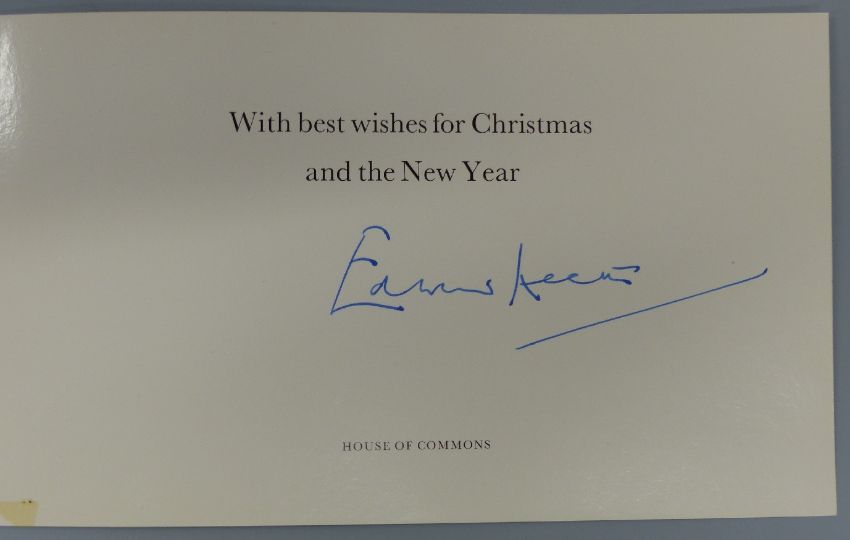 With best wishes for Christmas
and the New Year
Edward Heath
HOUSE OF COMMONS